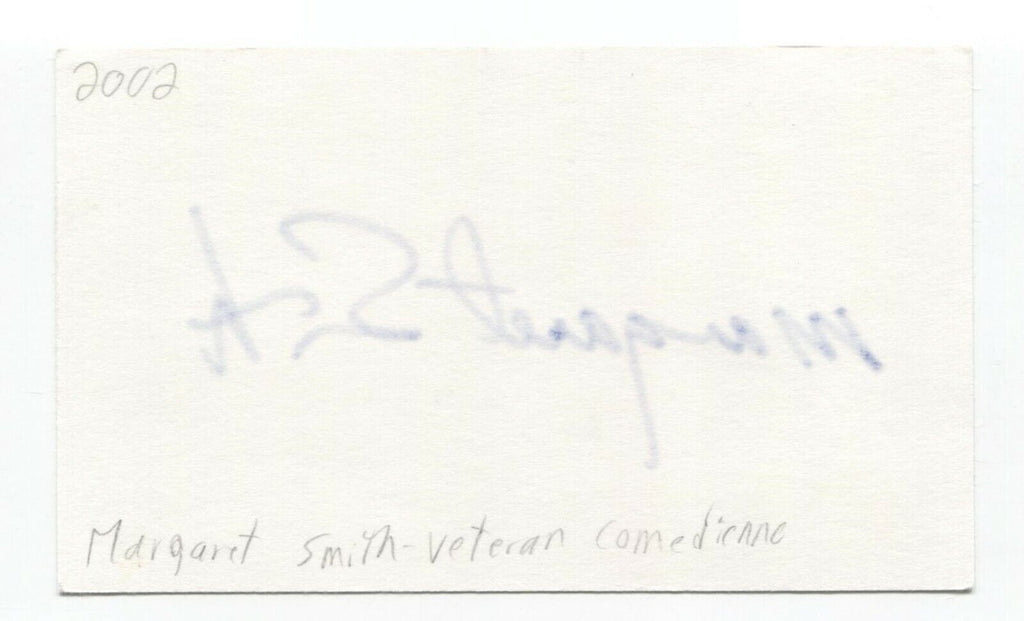 2002
Margaret S
Margaret Smith - Veteran Comedienne